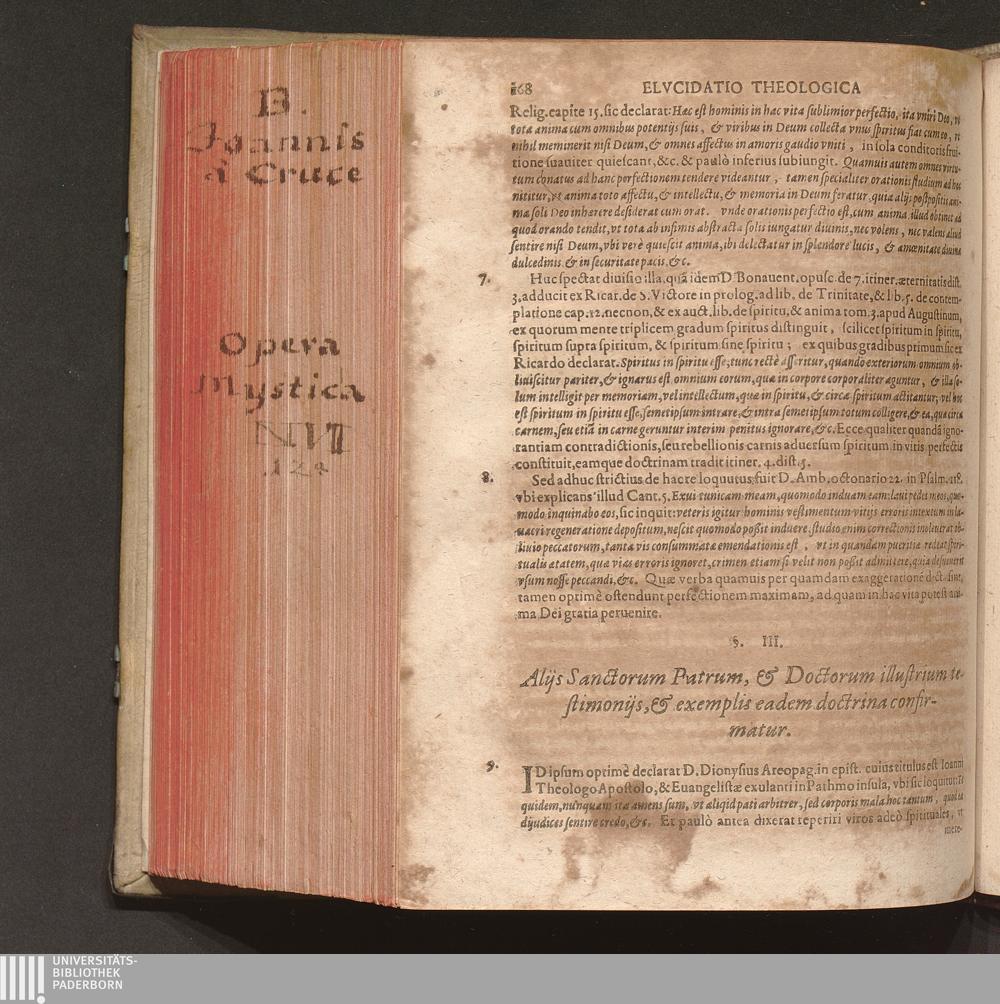 B.
Joannis
à Cruce
Opera
Mystica
168 ELVCIDATIO THEOLOGICA
Relig. capite 15. sic declarat: Hæc est hominis in hac vita sublimior perfectio, ita vniri Deo, vt
tota anima cum omnibus potentijs suis, & viribus in Deum collecta vnus spiritus fiat cum eo, vt
nihil meminerit nisi Deum, & omnes affectus in amoris gaudio vniti, in sola conditoris frui-
tione suauiter quiescant, &c. & paulò inferius subiungit. Quamuis autem omnes virtu-
tum conatus ad hanc perfectionem tendere videantur, tamen specialiter orationis studium ad hoc
nititur, vt anima toto affectu, & intellectu, & memoria in Deum feratur, quia alijs postpositis ani-
ma soli Deo inhærere desiderat cum orat. vnde orationis perfectio est, cum anima illud obtinet ad
quod orando tendit, vt tota ab infimis abstracta solis iungatur diuinis, nec volens, nec valens aliud
sentire nisi Deum, vbi verè quiescit anima, ibi delectatur in splendore lucis, & amœnitate diuinæ
dulcedinis & in securitate pacis, &c.
7. Huc spectat diuisio illa, quã idem D. Bonauent. opusc. de 7. itiner. æternitatis dist.
3. adducit ex Ricar. de S. Victore in prolog. ad lib. de Trinitate, & lib. 5. de contem-
platione cap. 12. necnon, & ex auct. lib. de spiritu, & anima tom. 3. apud Augustinum,
ex quorum mente triplicem gradum spiritus distinguit, scilicet spiritum in spiritu,
spiritum supra spiritum, & spiritum sine spiritu; ex quibus gradibus primum sic ex
Ricardo declarat. Spiritus in spiritu esse, tunc rectè asseritur, quando exteriorum omnium ob-
liuiscitur pariter, & ignarus est omnium eorum, quæ in corpore corporaliter aguntur, & illa so-
lum intelligit per memoriam, vel intellectum, quæ in spiritu, & circa spiritum actitantur; vel hoc
est spiritum in spiritu esse, semetipsum intrare, & intra semetipsum totum colligere, & ea, quæ circa
carnem, seu etiã in carne geruntur interim penitus ignorare, &c. Ecce qualiter quandã igno-
rantiam contradictionis, seu rebellionis carnis aduersum spiritum in viris perfectis
constituit, eamque doctrinam tradit itiner. 4. dist. 5.
8. Sed adhuc strictius de hac re loquutus fuit D. Amb. octonario 22. in Psalm. 118.
vbi explicans illud Cant. 5. Exui tunicam meam, quomodo induam eam: laui pedes meos, quo-
modo inquinabo eos, sic inquit: veteris igitur hominis vestimentum vitijs erroris intextum in la-
uacri regeneratione depositum, nescit quomodo poßit induere, studio enim correctionis inoleuerat ob-
liuio peccatorum, tanta vis consummatæ emendationis est, vt in quandam pueritiæ redeat spiri-
tualis ætatem, quæ vias erroris ignoret, crimen etiamsi velit non poßit admittere, quia desuuerit
vsum nosse peccandi, &c. Quæ verba quamuis per quamdam exaggerationẽ dicta sint,
tamen optimè ostendunt perfectionem maximam, ad quam in hac vita potest ani-
ma Dei gratia peruenire.
§. III.
Alijs Sanctorum Patrum, & Doctorum illustrium te-
stimonijs, & exemplis eadem doctrina confir-
matur.
9. IDipsum optimè declarat D. Dionysius Areopag. in epist. cuius titulus est Ioanni
Theologo Apostolo, & Euangelistæ exulanti in Pathmo insula, vbi sic loquitur: Et
quidem, nunquam ita amens sum, vt aliqid pati arbitrer, sed corporis mala hoc tantum, quod ea
dijudices sentire credo, &c. Et paulò antea dixerat reperiri viros adeò spirituales, vt
mere-
UNIVERSITÄTS-
BIBLIOTHEK
PADERBORN